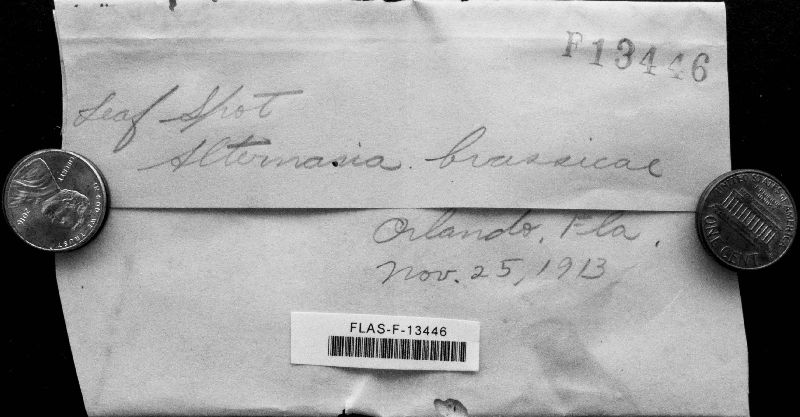 F13446
Leaf Spot
Alternaria brassicae
Orlando, Fla.
Nov. 25, 1913
FLAS-F-13446
LIBERTY
IN GOD WE TRUST
ONE CENT